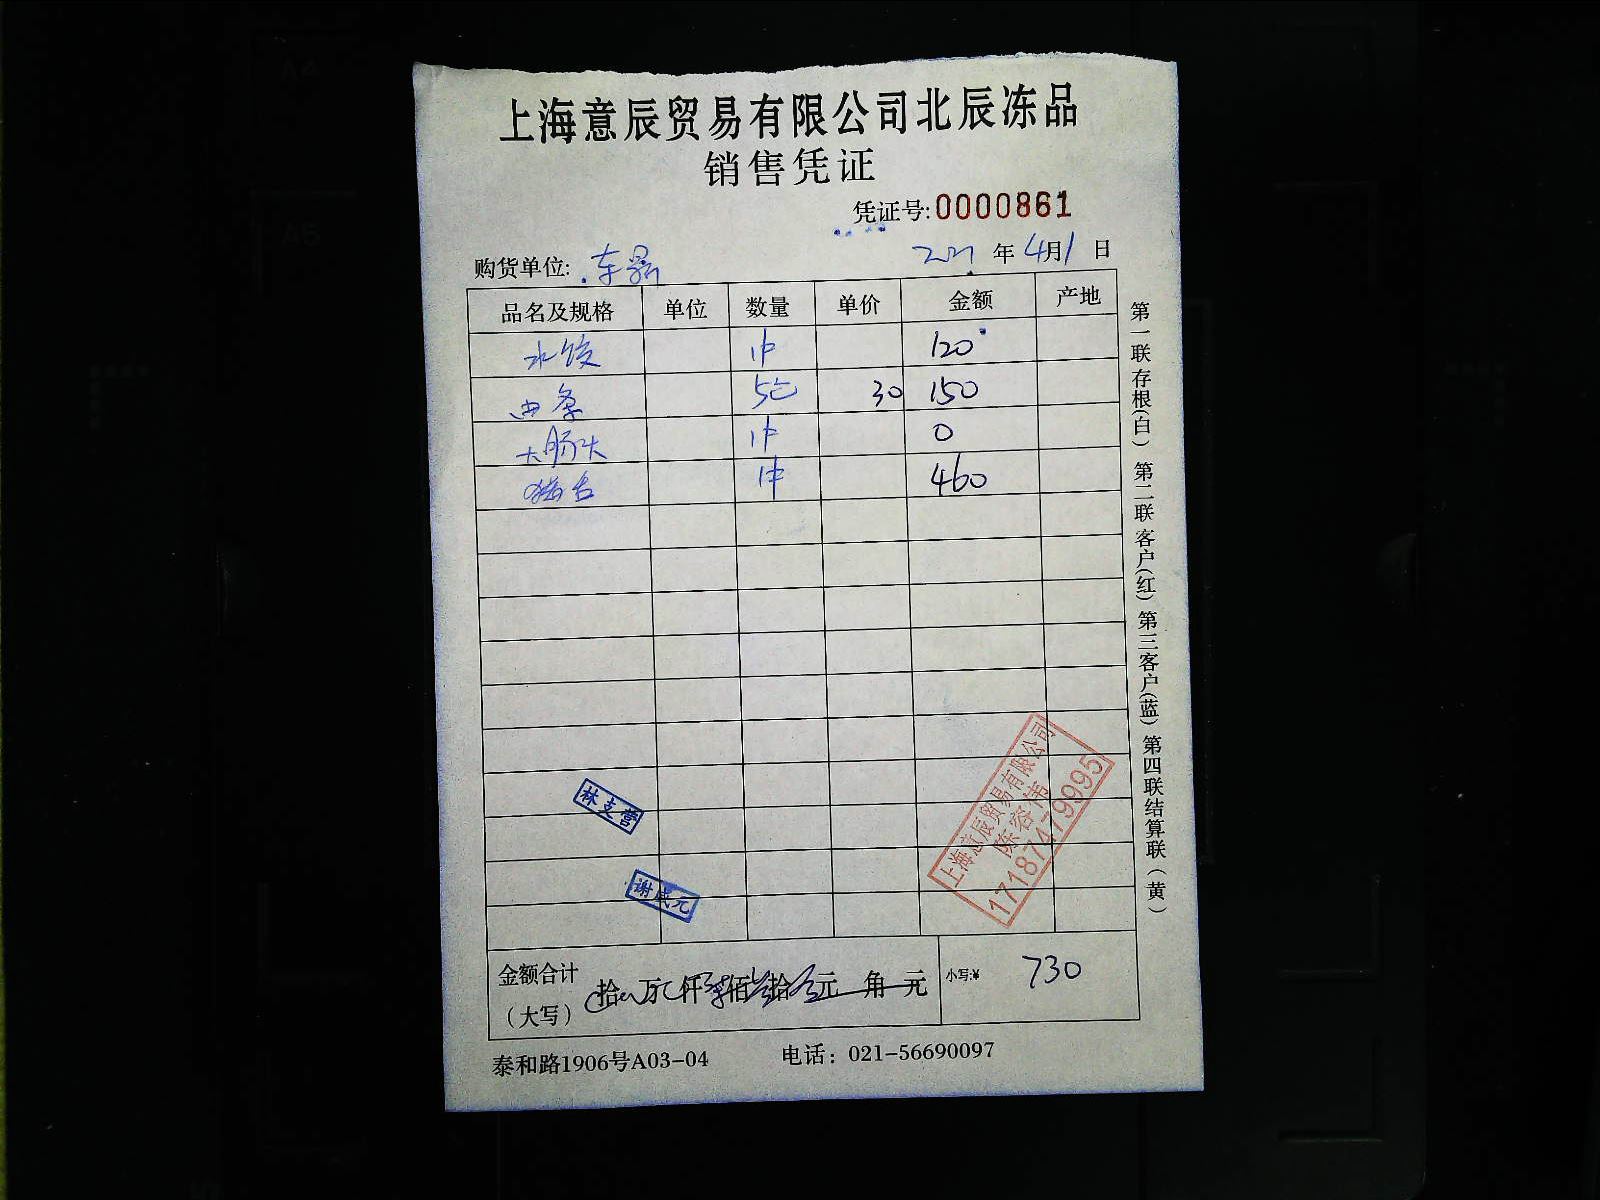 上海意辰贸易有限公司北辰冻品
销售凭证
凭证号:0000861
购货单位: 年 4月1日
品名及规格 单位 数量 单价 金额 产地
水饺 1件 120
5包 30 150
大肠头 1件 0
1件 460
林支营
谢成元
上海意辰贸易有限公司
陈容伟
17187479995
金额合计(大写) 拾 万 仟 佰 拾 元 角 元 小写:¥ 730
泰和路1906号A03-04 电话：021-56690097
第一联存根(白) 第二联客户(红) 第三客户(蓝) 第四联结算联(黄)